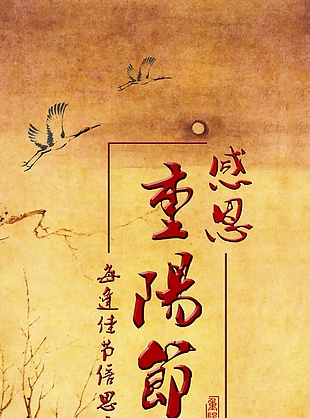 感恩
重陽節
每逢佳节倍思